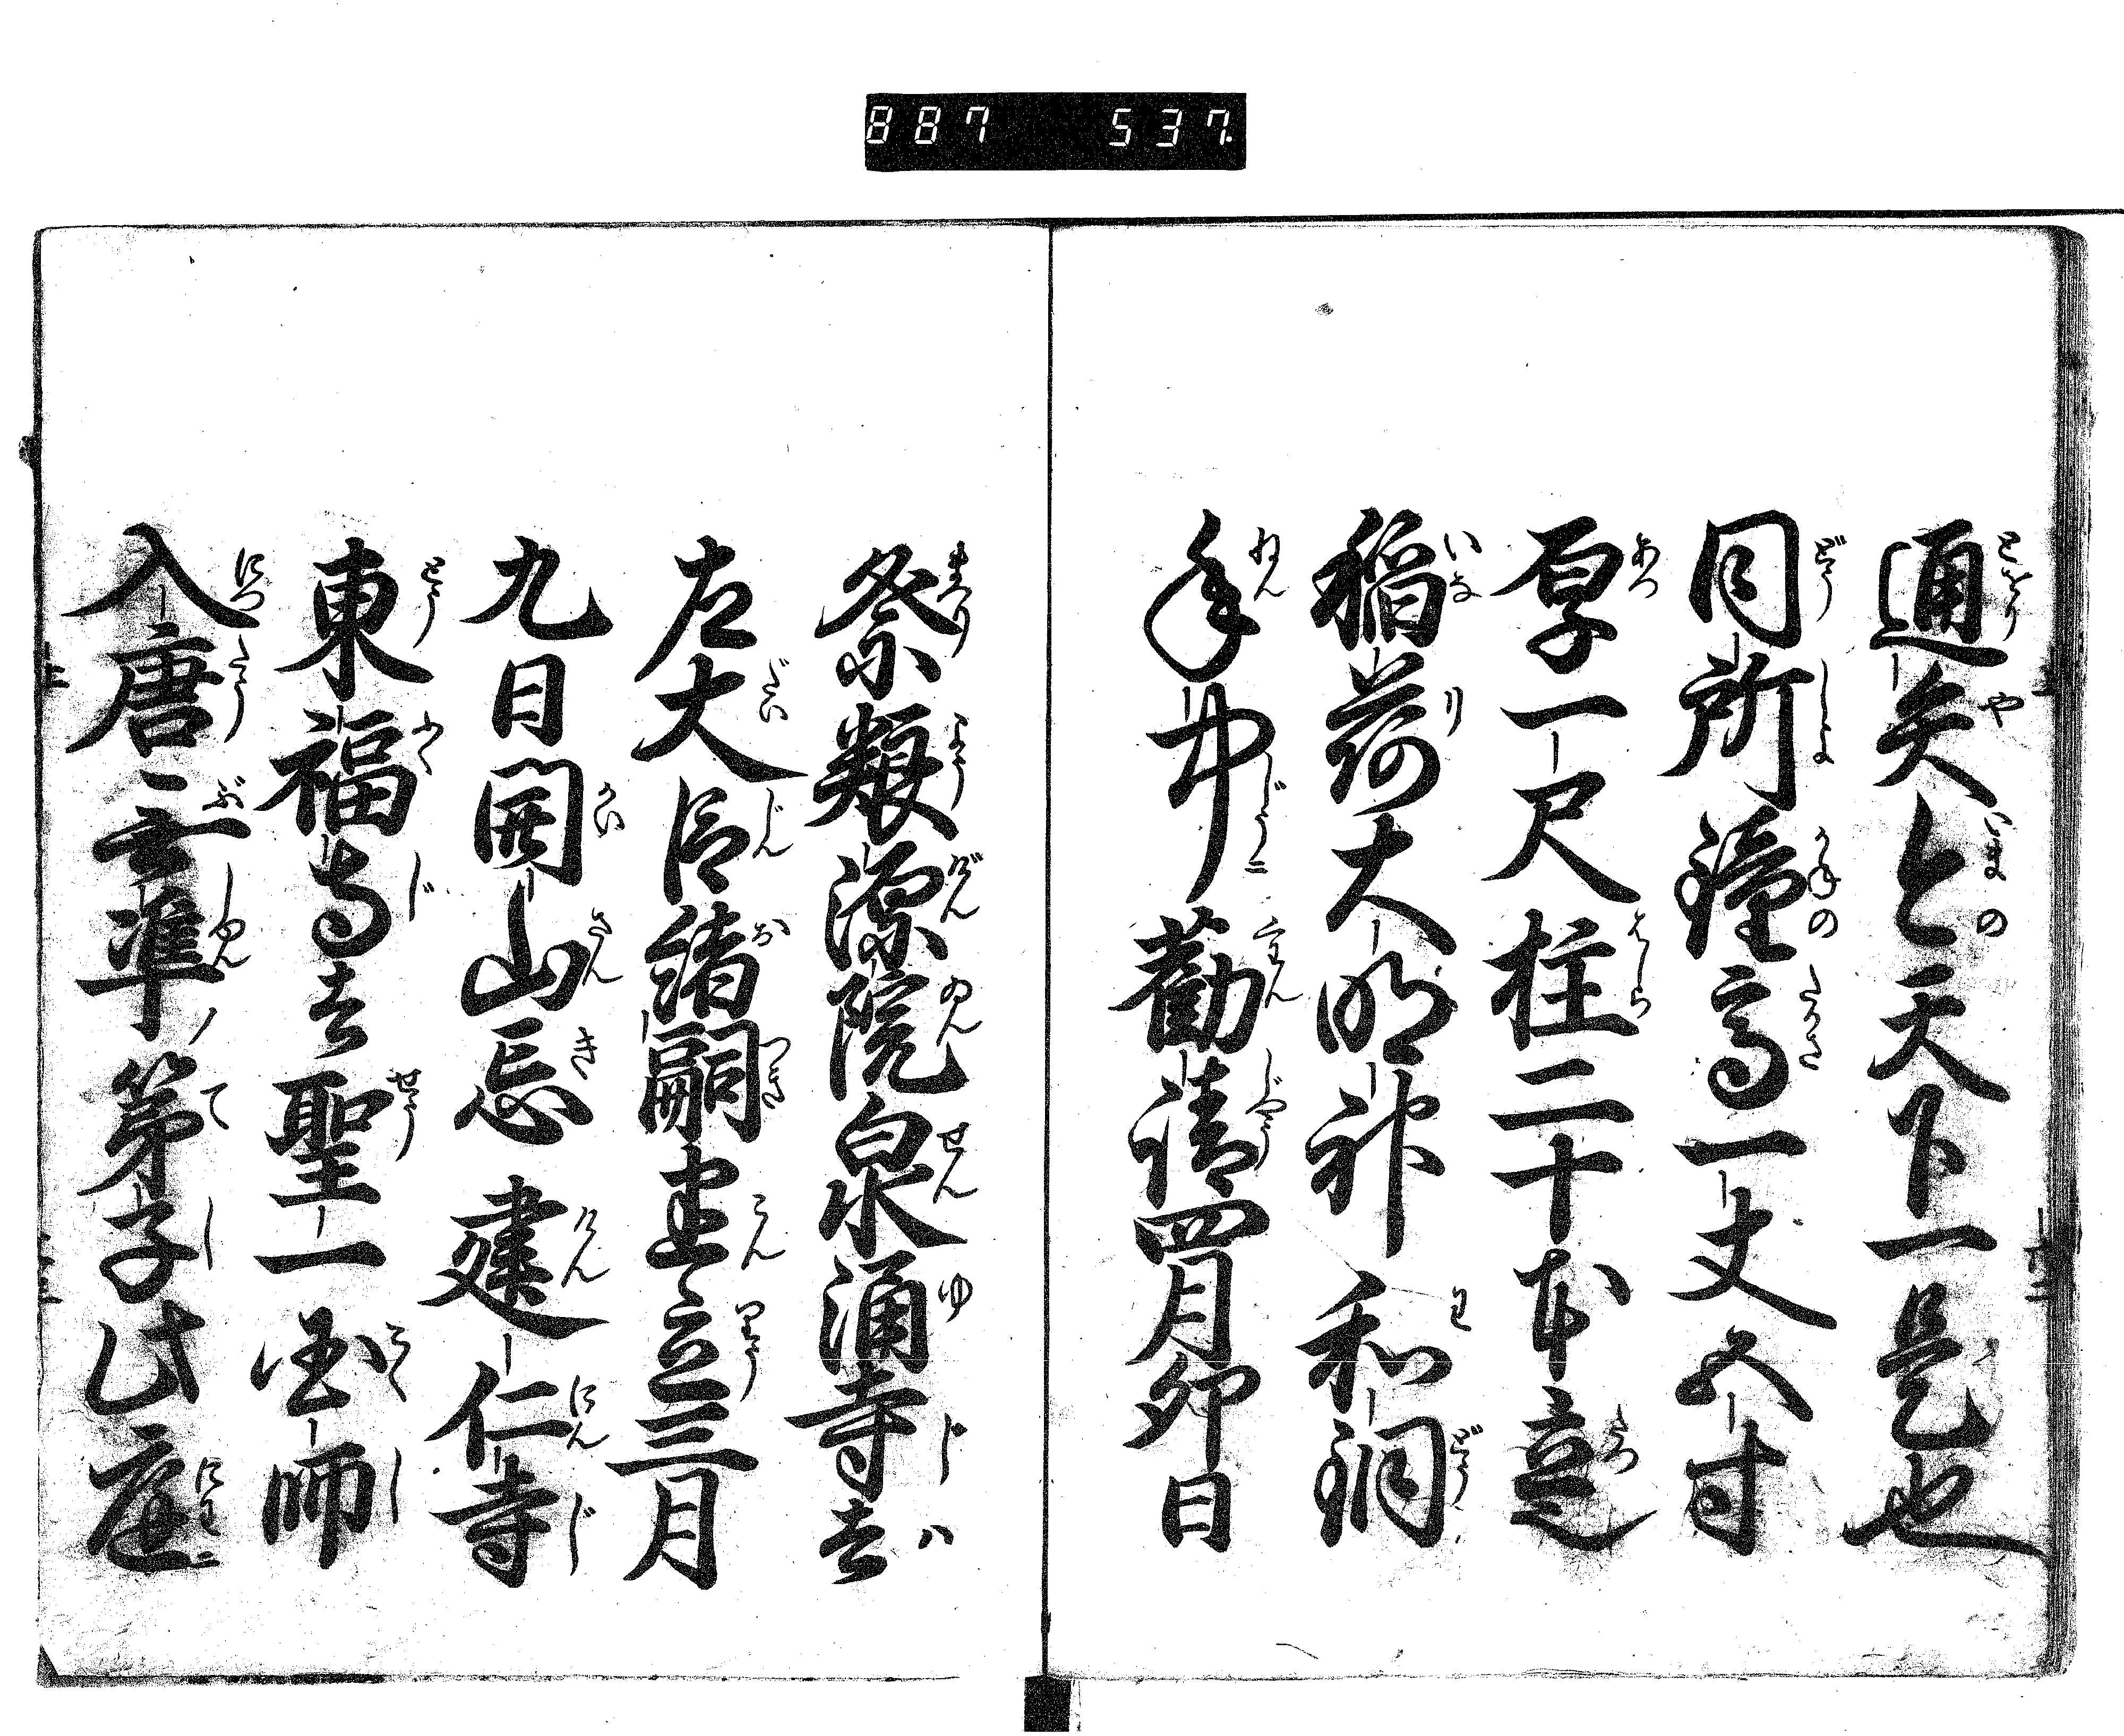 887 537
通矢今天下一是也
同所鐘高一丈五寸
厚一尺柱二十本
稲荷大明神和銅
年中勸請四月卯日
祭 源院泉涌寺者
左大臣緒嗣建立三月
九日開山忌建仁寺
東福寺者聖一国師
入唐無準ノ弟子此庭